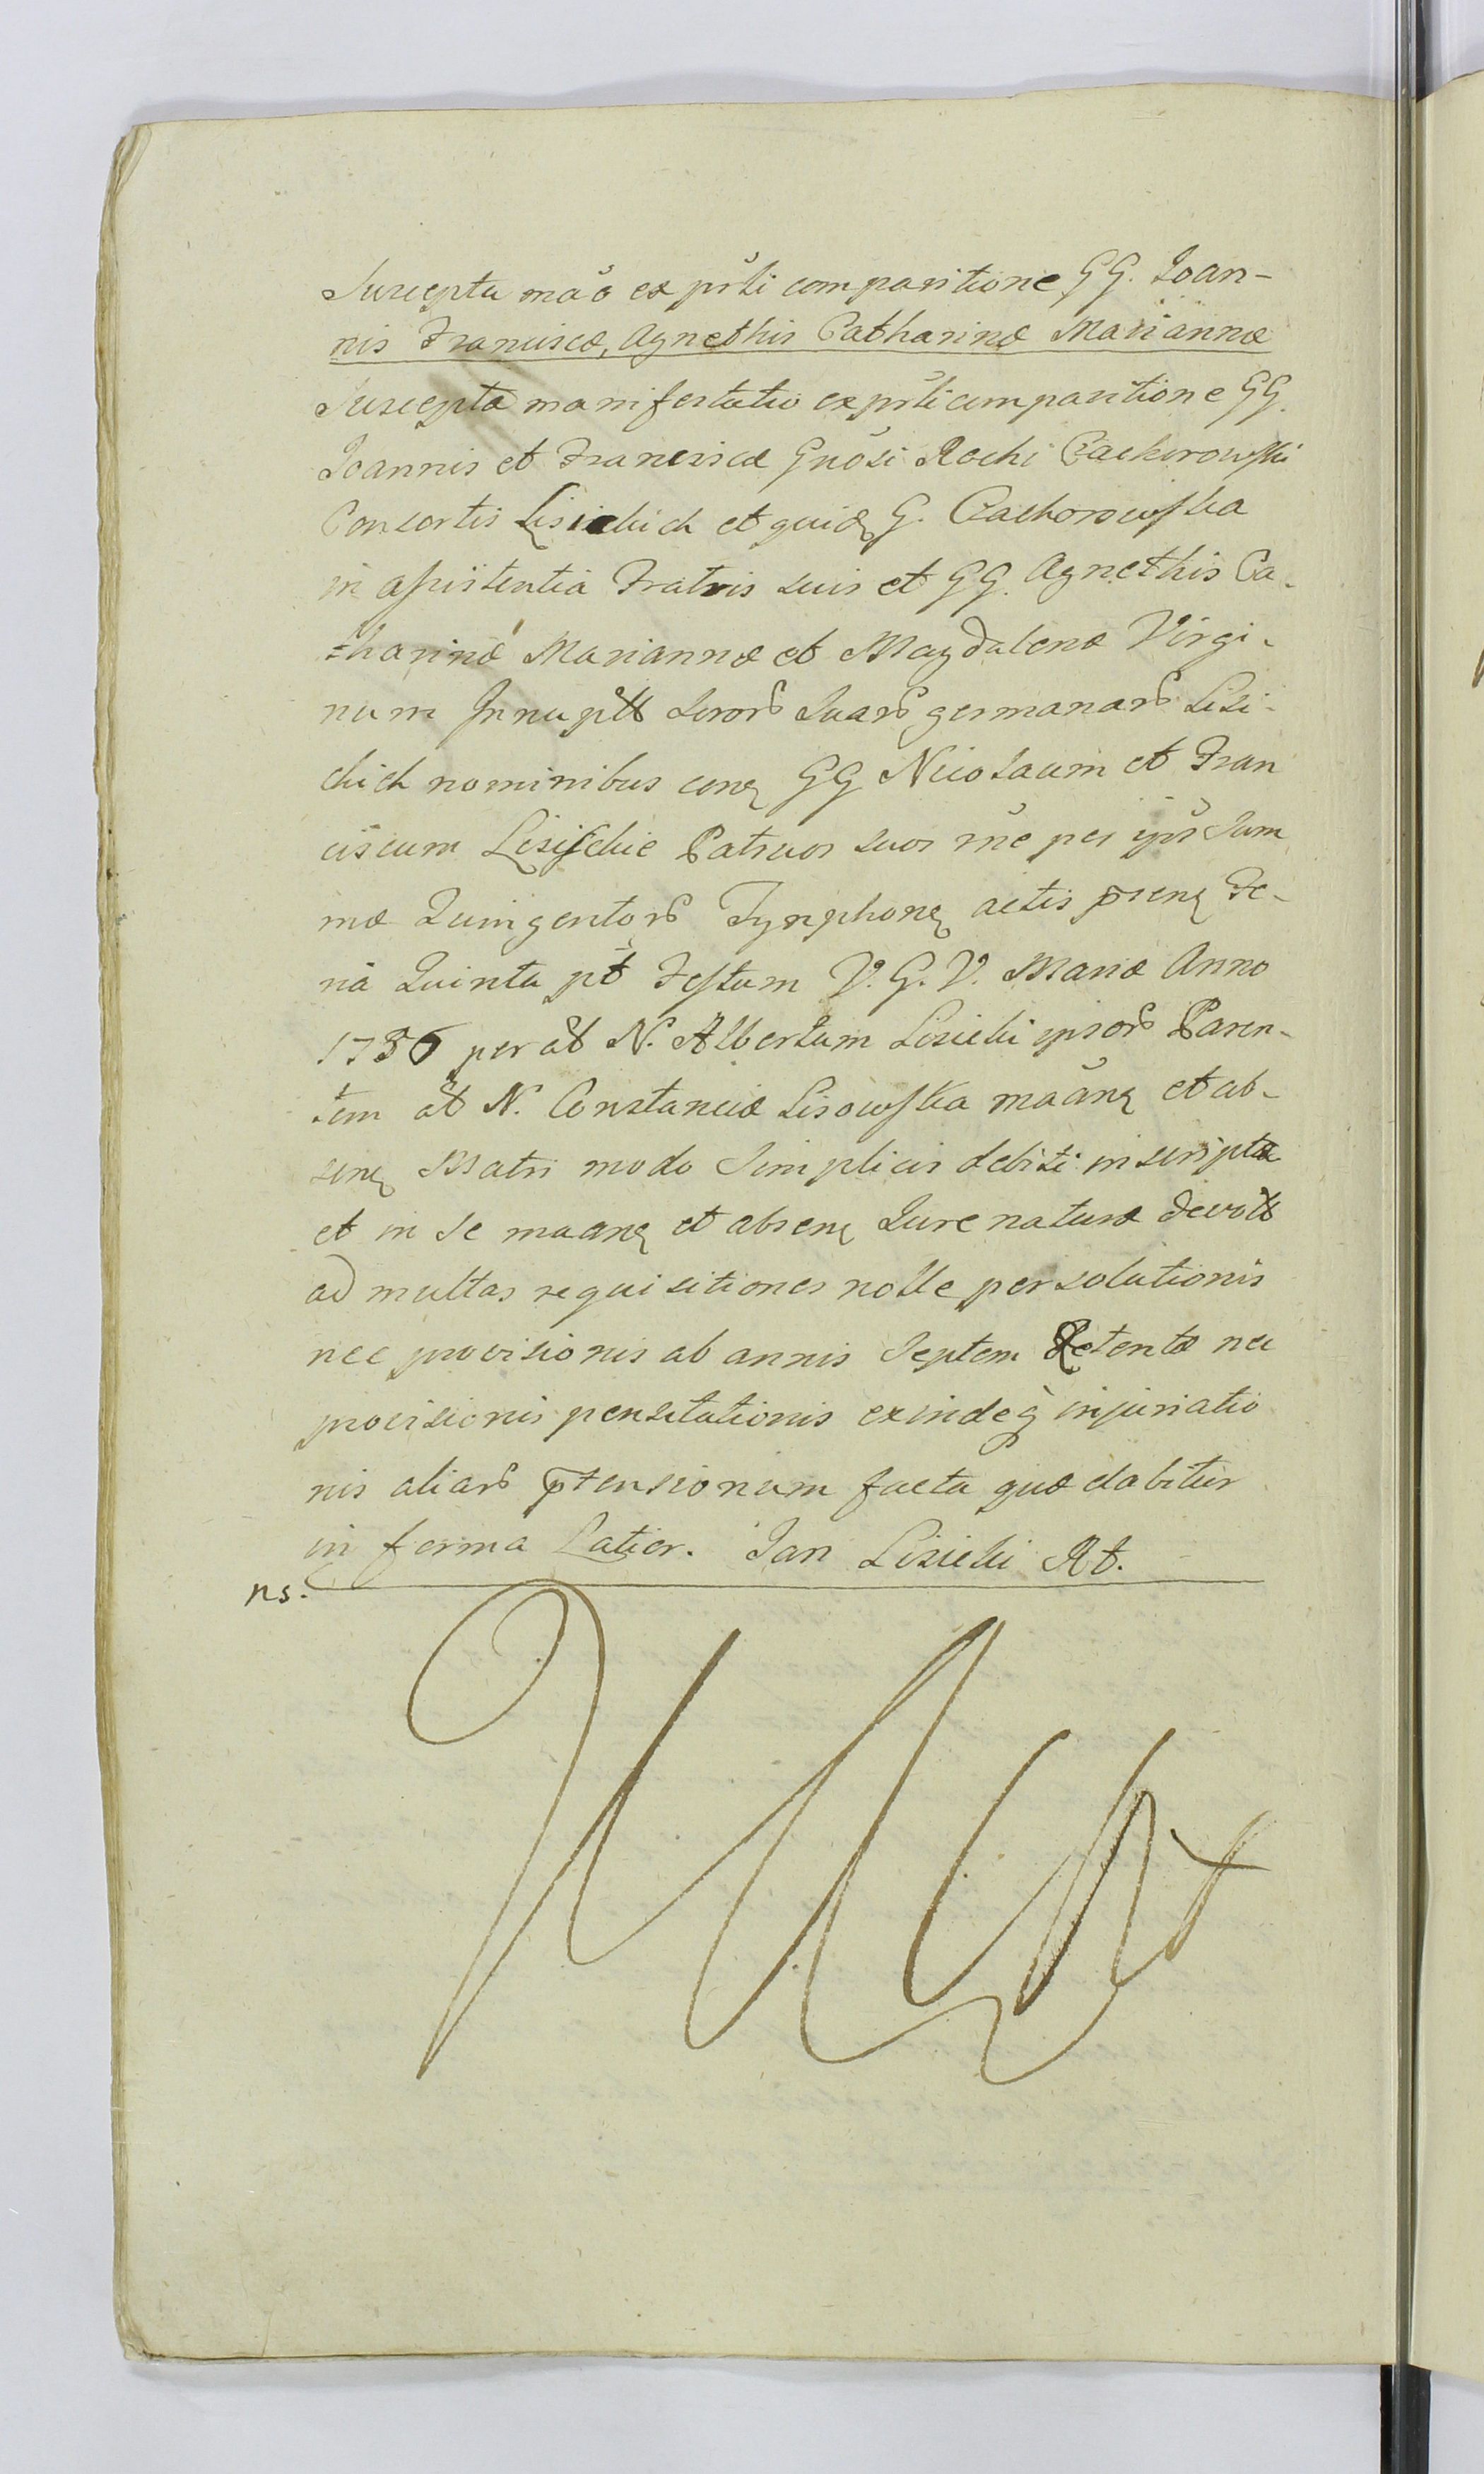 Suscepta mão ex prsti comparitione GG. Joan-
nis Franciscæ, Agnethis Catharinæ Mariannæ
Suscepta manifestatio ex prsti comparitione GG.
Joannis et Franciscæ Gnosi Rochi Czachorowski
Consortis Lisickich et quidę G. Czachorowska
in assistentia Fratris suis et GG. Agnethis Ca-
tharinæ Mariannæ et Magdalenæ Virgi-
num Innuptt Soror Suar germanar Lisi-
ckich nominibus conę GG Nicolaum et Fran
ciscum Lisickie Patruos suos rne per ips Sum
mæ Quingentor Tynphonę actis prsenę Fe-
ria Quinta pt Festum V. G. V. Mariæ Anno
1736 per olt N. Albertum Lisicki ipsor Paren-
tem olt N. Constanciæ Lisowska maanę et ab-
senę Matri modo Simplicis debiti inscriptæ
et in se maanę et absenę Jure naturæ devolt
ad multas requisitiones nolle persolutionis
nec provisionis ab annis Septem Retentæ nec
provisionis pensitationis exindeq injuriatio
nis aliar prtensionum facta quæ dabitur
in forma Latior. Jan Lisicki Rt.
ns.